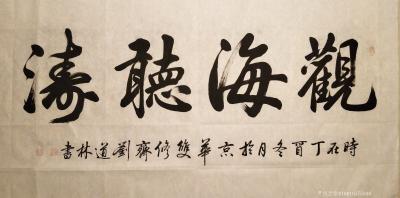 觀海聽濤
時在丁酉冬月於京華雙修齋劉道林書